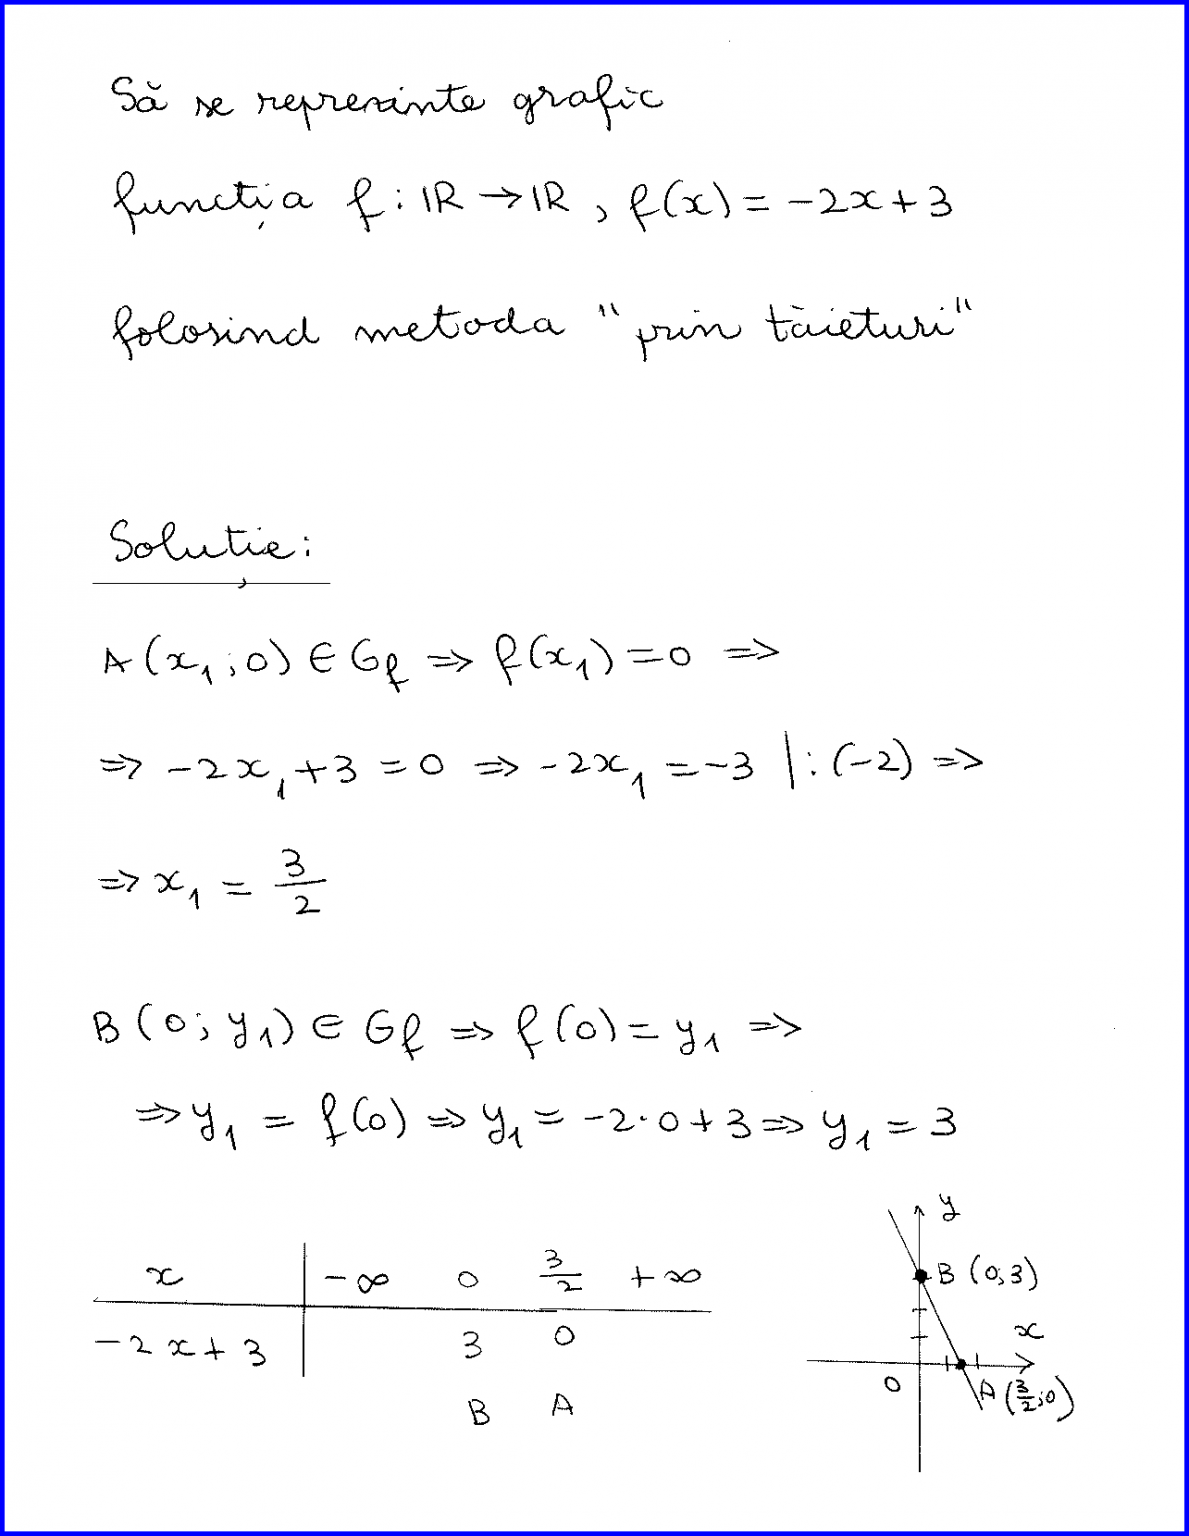 Să se reprezinte grafic
funcția f : ℝ → ℝ , f(x) = -2x + 3
folosind metoda "prin tăieturi"
Soluție:
A(x₁; 0) ∈ Gf ⇒ f(x₁) = 0 ⇒
⇒ -2x₁ + 3 = 0 ⇒ -2x₁ = -3 | : (-2) ⇒
⇒ x₁ = 3/2
B(0; y₁) ∈ Gf ⇒ f(0) = y₁ ⇒
⇒ y₁ = f(0) ⇒ y₁ = -2·0 + 3 ⇒ y₁ = 3
x | -∞ 0 3/2 +∞
-2x + 3 | 3 0
B A
y
B (0;3)
x
0
A (3/2;0)